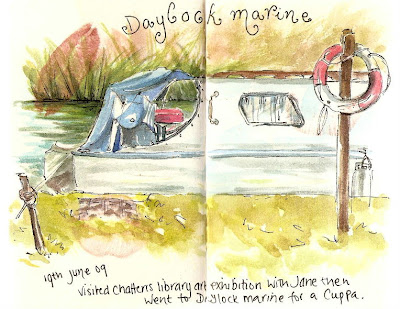 Daylock marine
19th june 09
Visited Chatteris library art exhibition with Jane then
Went to Daylock marine for a Cuppa.